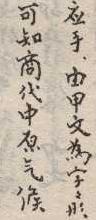 应乎、由甲文為字之形
可知商代中原气候